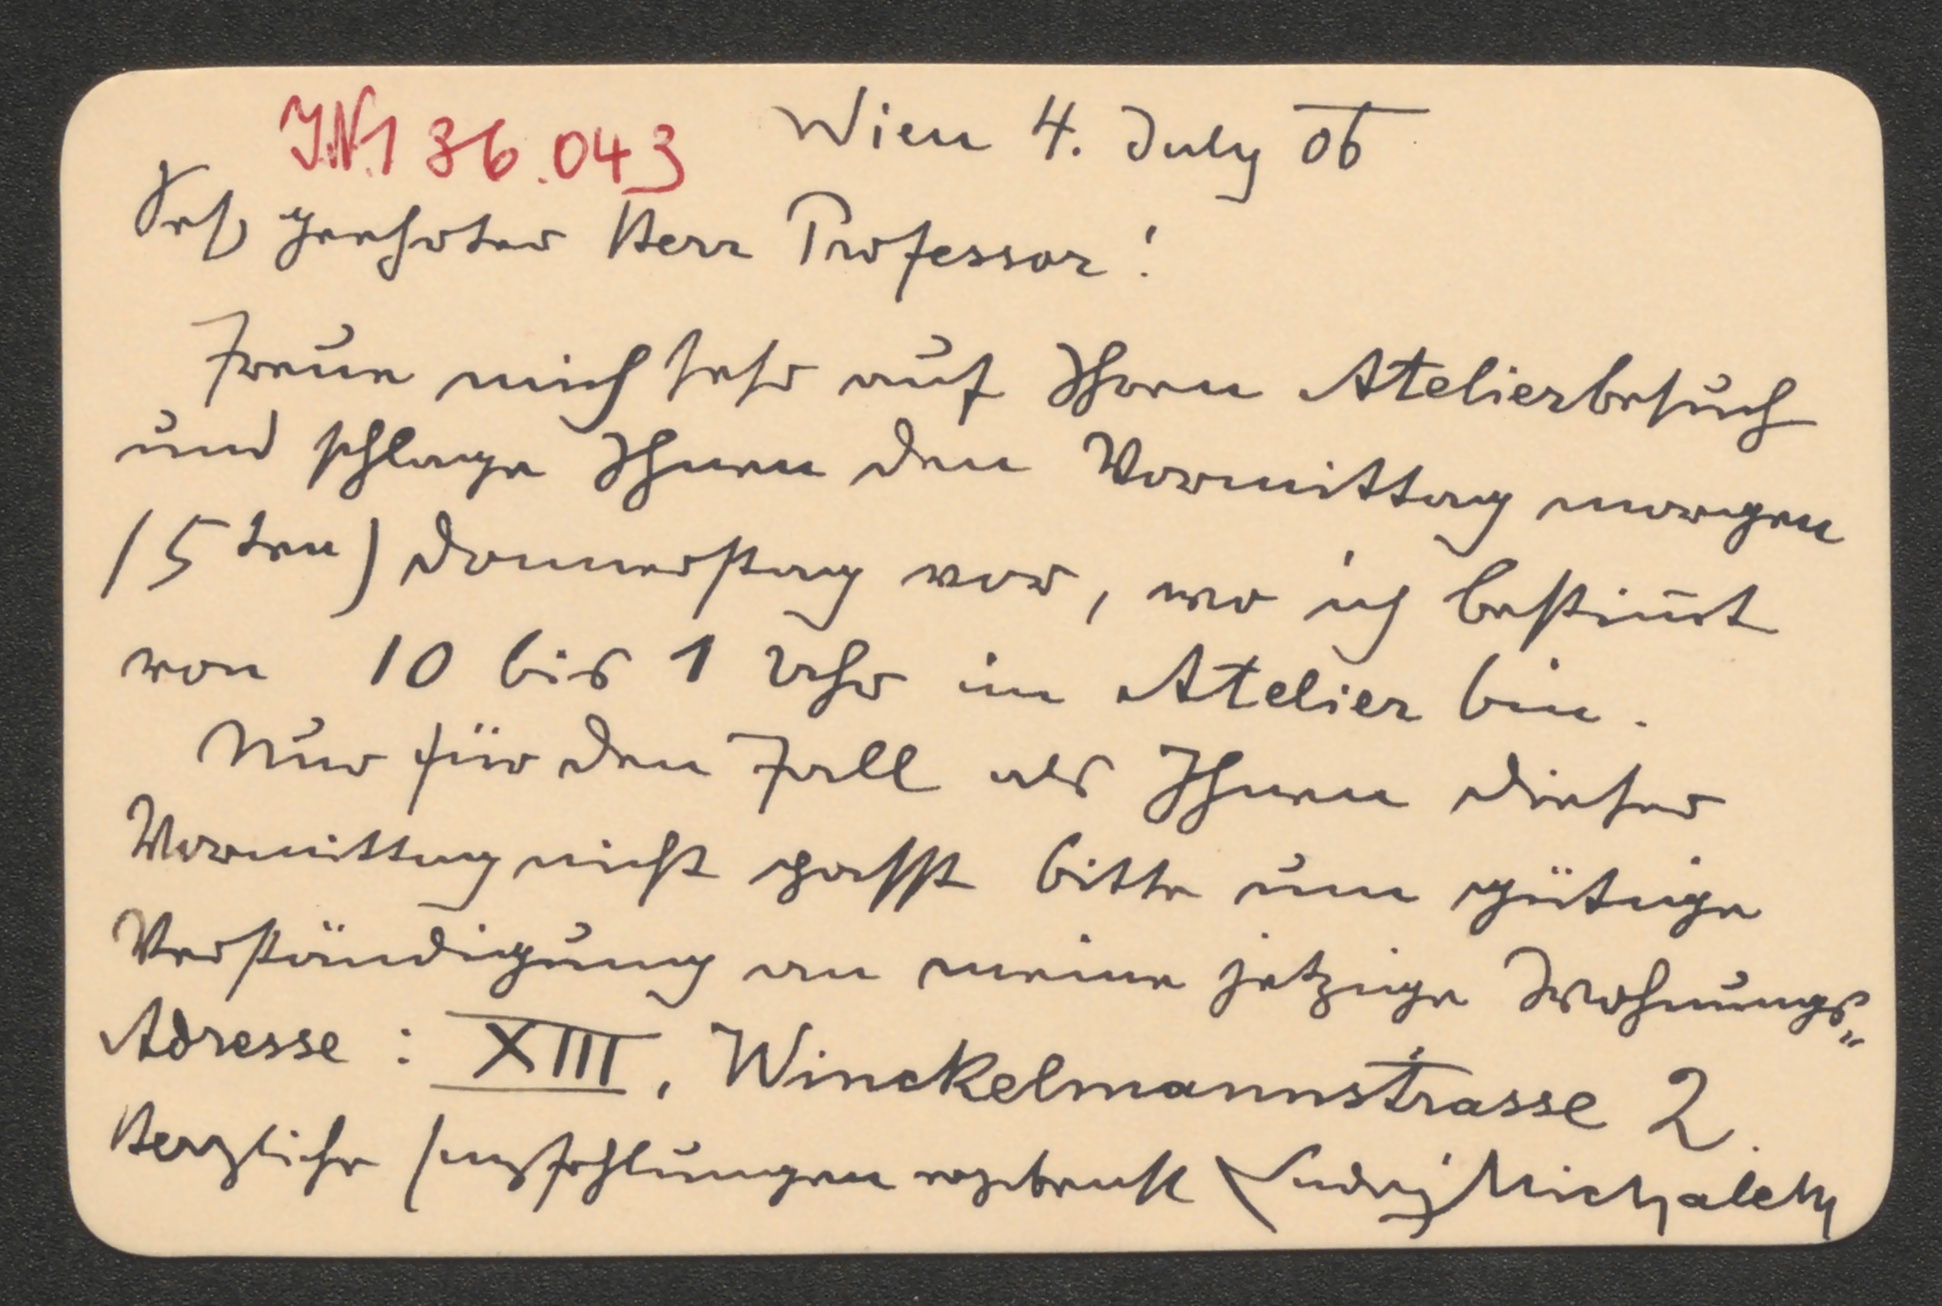 IN 136.043 Wien 4. July 06
Sehr geehrter Herr Professor!
Freue mich sehr auf Ihren Atelierbesuch
und schlage Ihnen den Vormittag morgen
(5ten) Donnerstag vor, wo ich bestim̄t
von 10 bis 1 Uhr im Atelier bin.
Nur für den Fall als Ihnen dieser
Vormittag nicht passt bitte um gütige
Verständigung an meine jetzige Wohnungs„
Adresse : XIII, Winckelmannstrasse 2.
Herzliche Empfehlungen ergebenst Ludwig Michalek